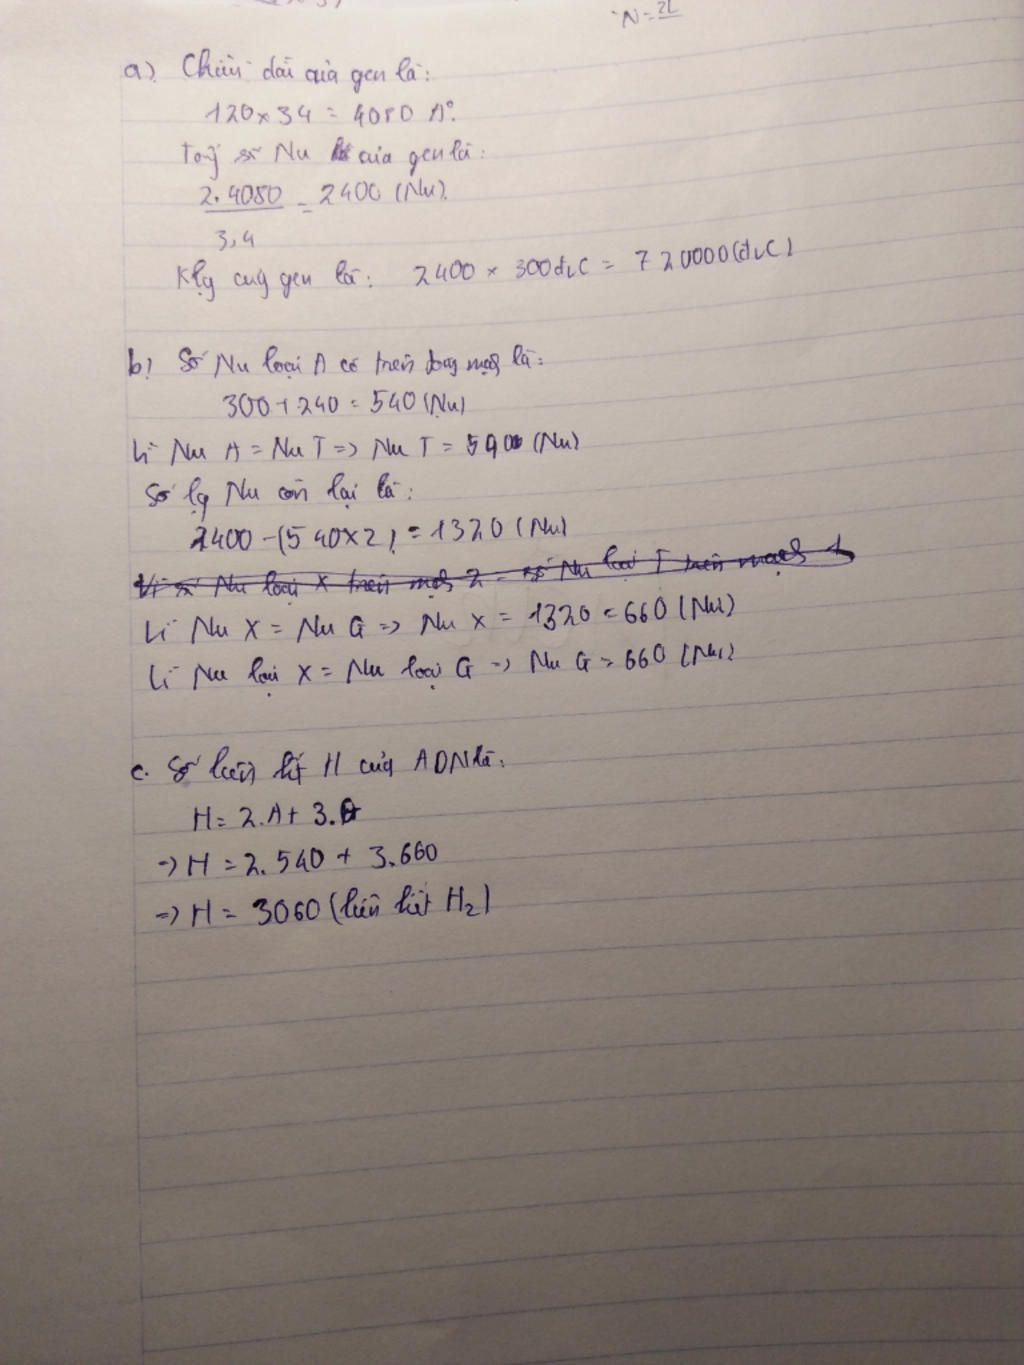 N = 2L
a) Chiều dài của gen là:
120 × 34 = 4080 A°.
Tổng số Nu của gen là:
2.4080 = 2400 (Nu).
3,4
Klg của gen là: 2400 × 300đvC = 720000(đvC)
b) Số Nu loại A có trên từng mạch là:
300 + 240 = 540 (Nu)
Vì Nu A = Nu T => Nu T = 540 (Nu)
Số lg Nu còn lại là:
2400 - (540×2) = 1320 (Nu)
Vì số Nu loại X trên mạch 2 = số Nu loại T trên mạch 1
Vì Nu X = Nu G => Nu X = 1320 = 660 (Nu)
Vì Nu loại X = Nu loại G => Nu G = 660 (Nu)
c. Số liên kết H của ADN là:
H = 2.A + 3.G
=> H = 2.540 + 3.660
=> H = 3060 (liên kết H2)